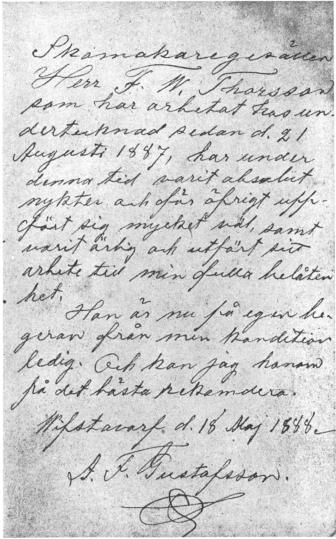 Skomakaregesällen
Herr F. W. Thorsson
som har arbetat hos un-
dertecknad sedan d. 21
Augusti 1887, har under
denna tid varit absolut
nykter och för öfrigt upp-
fört sig mycket väl, samt
varit ärlig och utfört sitt
arbete till min fulla belåten
het.
Han är nu på egen be-
geran från min kondition
ledig. Och kan jag honom
på det bästa rekomdera.
Wifstavarf. d. 18 Maj 1888.
A. F. Gustafsson.